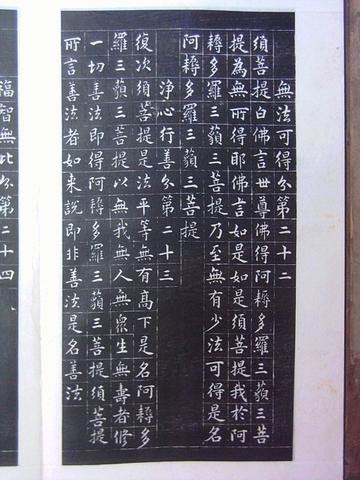 無法可得分第二十二
須菩提白佛言世尊佛得阿耨多羅三藐三菩
提為無所得耶佛言如是如是須菩提我於阿
耨多羅三藐三菩提乃至無有少法可得是名
阿耨多羅三藐三菩提
淨心行善分第二十三
復次須菩提是法平等無有高下是名阿耨多
羅三藐三菩提以無我無人無眾生無壽者修
一切善法即得阿耨多羅三藐三菩提須菩提
所言善法者如来說即非善法是名善法
福智無比分第二十四